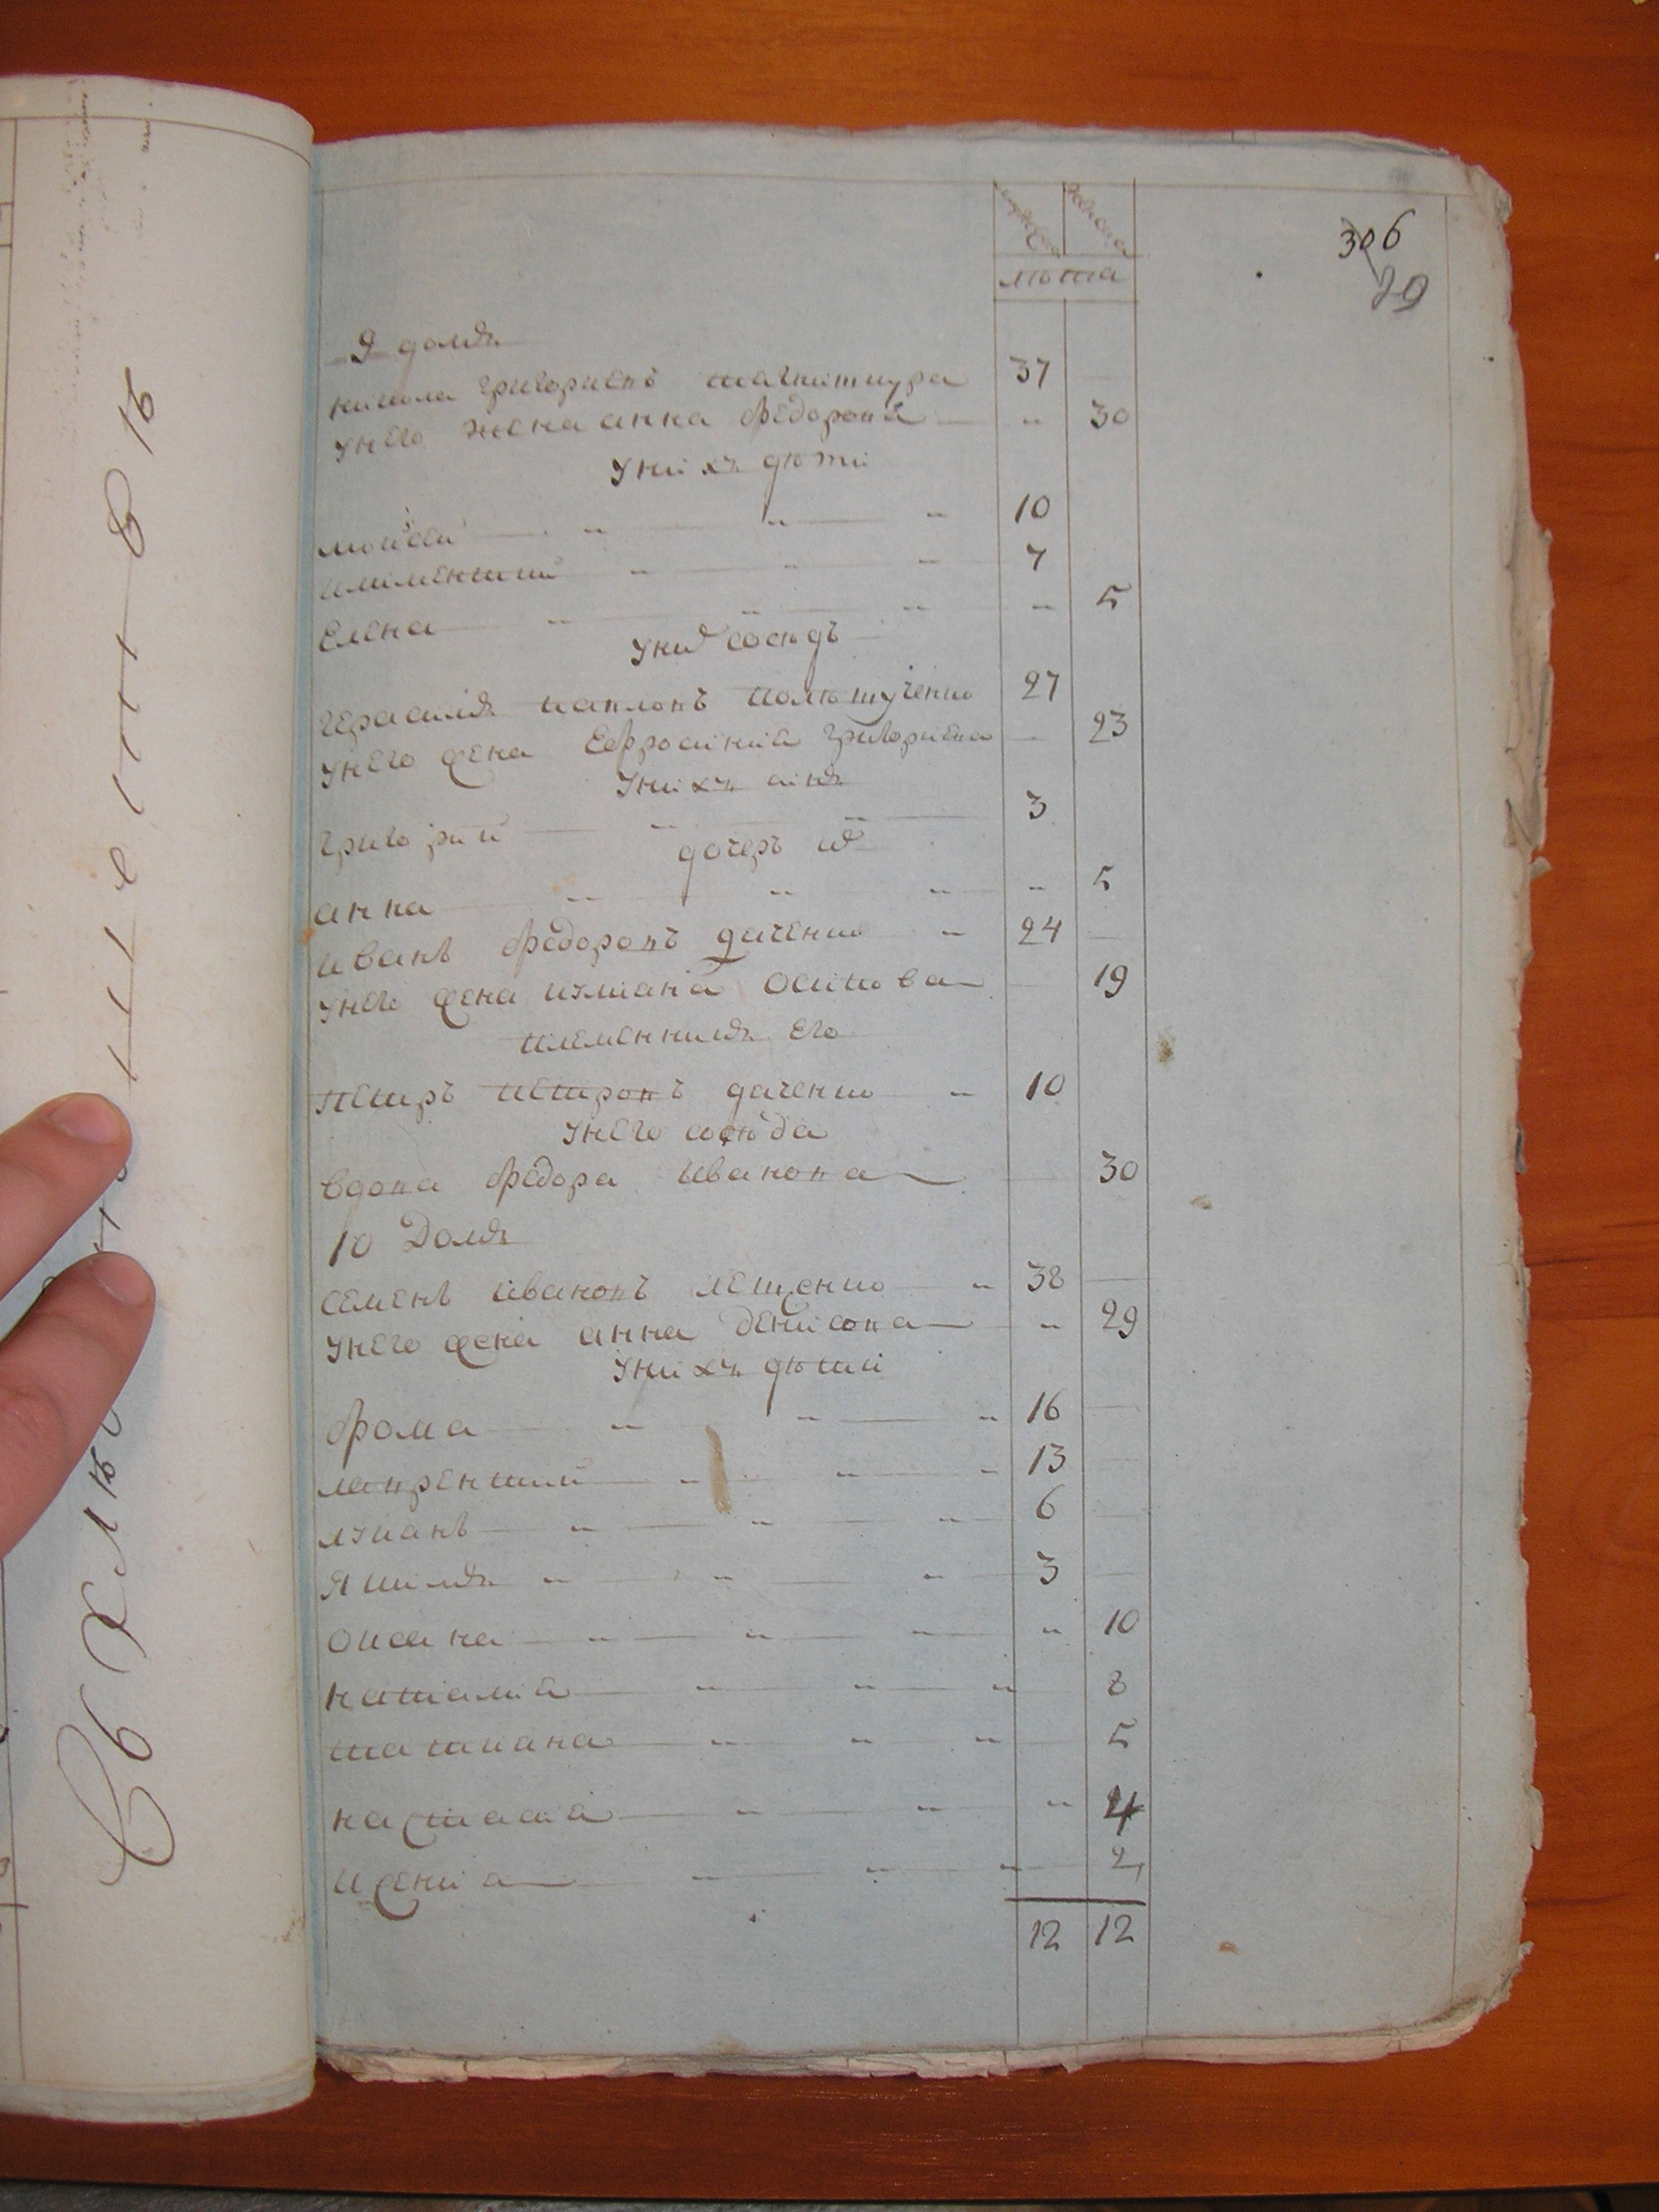 306
29
мужеска женска
лѣта
9 домъ
никола григориевъ 37
унего жена анна федорова 30
унихъ дѣти
мойсей 10
климентий 7
Елена 5
унихъ сосѣдъ
герасимъ павловъ 27
унего жена Ефросиния григориева 23
унихъ синъ
григорий 3
дочеръ
анна 5
иванъ федоровъ дяченко 24
унего жена улиана осипова 19
племенникъ его
петръ петровъ дяченко 10
унего сосѣда
вдова федора иванова 30
10 домъ
семенъ ивановъ лещенко 38
унего жена анна денисова 29
унихъ дѣти
фома 16
лаврентий 13
лукианъ 6
якимъ 3
оксана 10
наталия 8
татиана 5
настасия 4
ксения 2
12 12